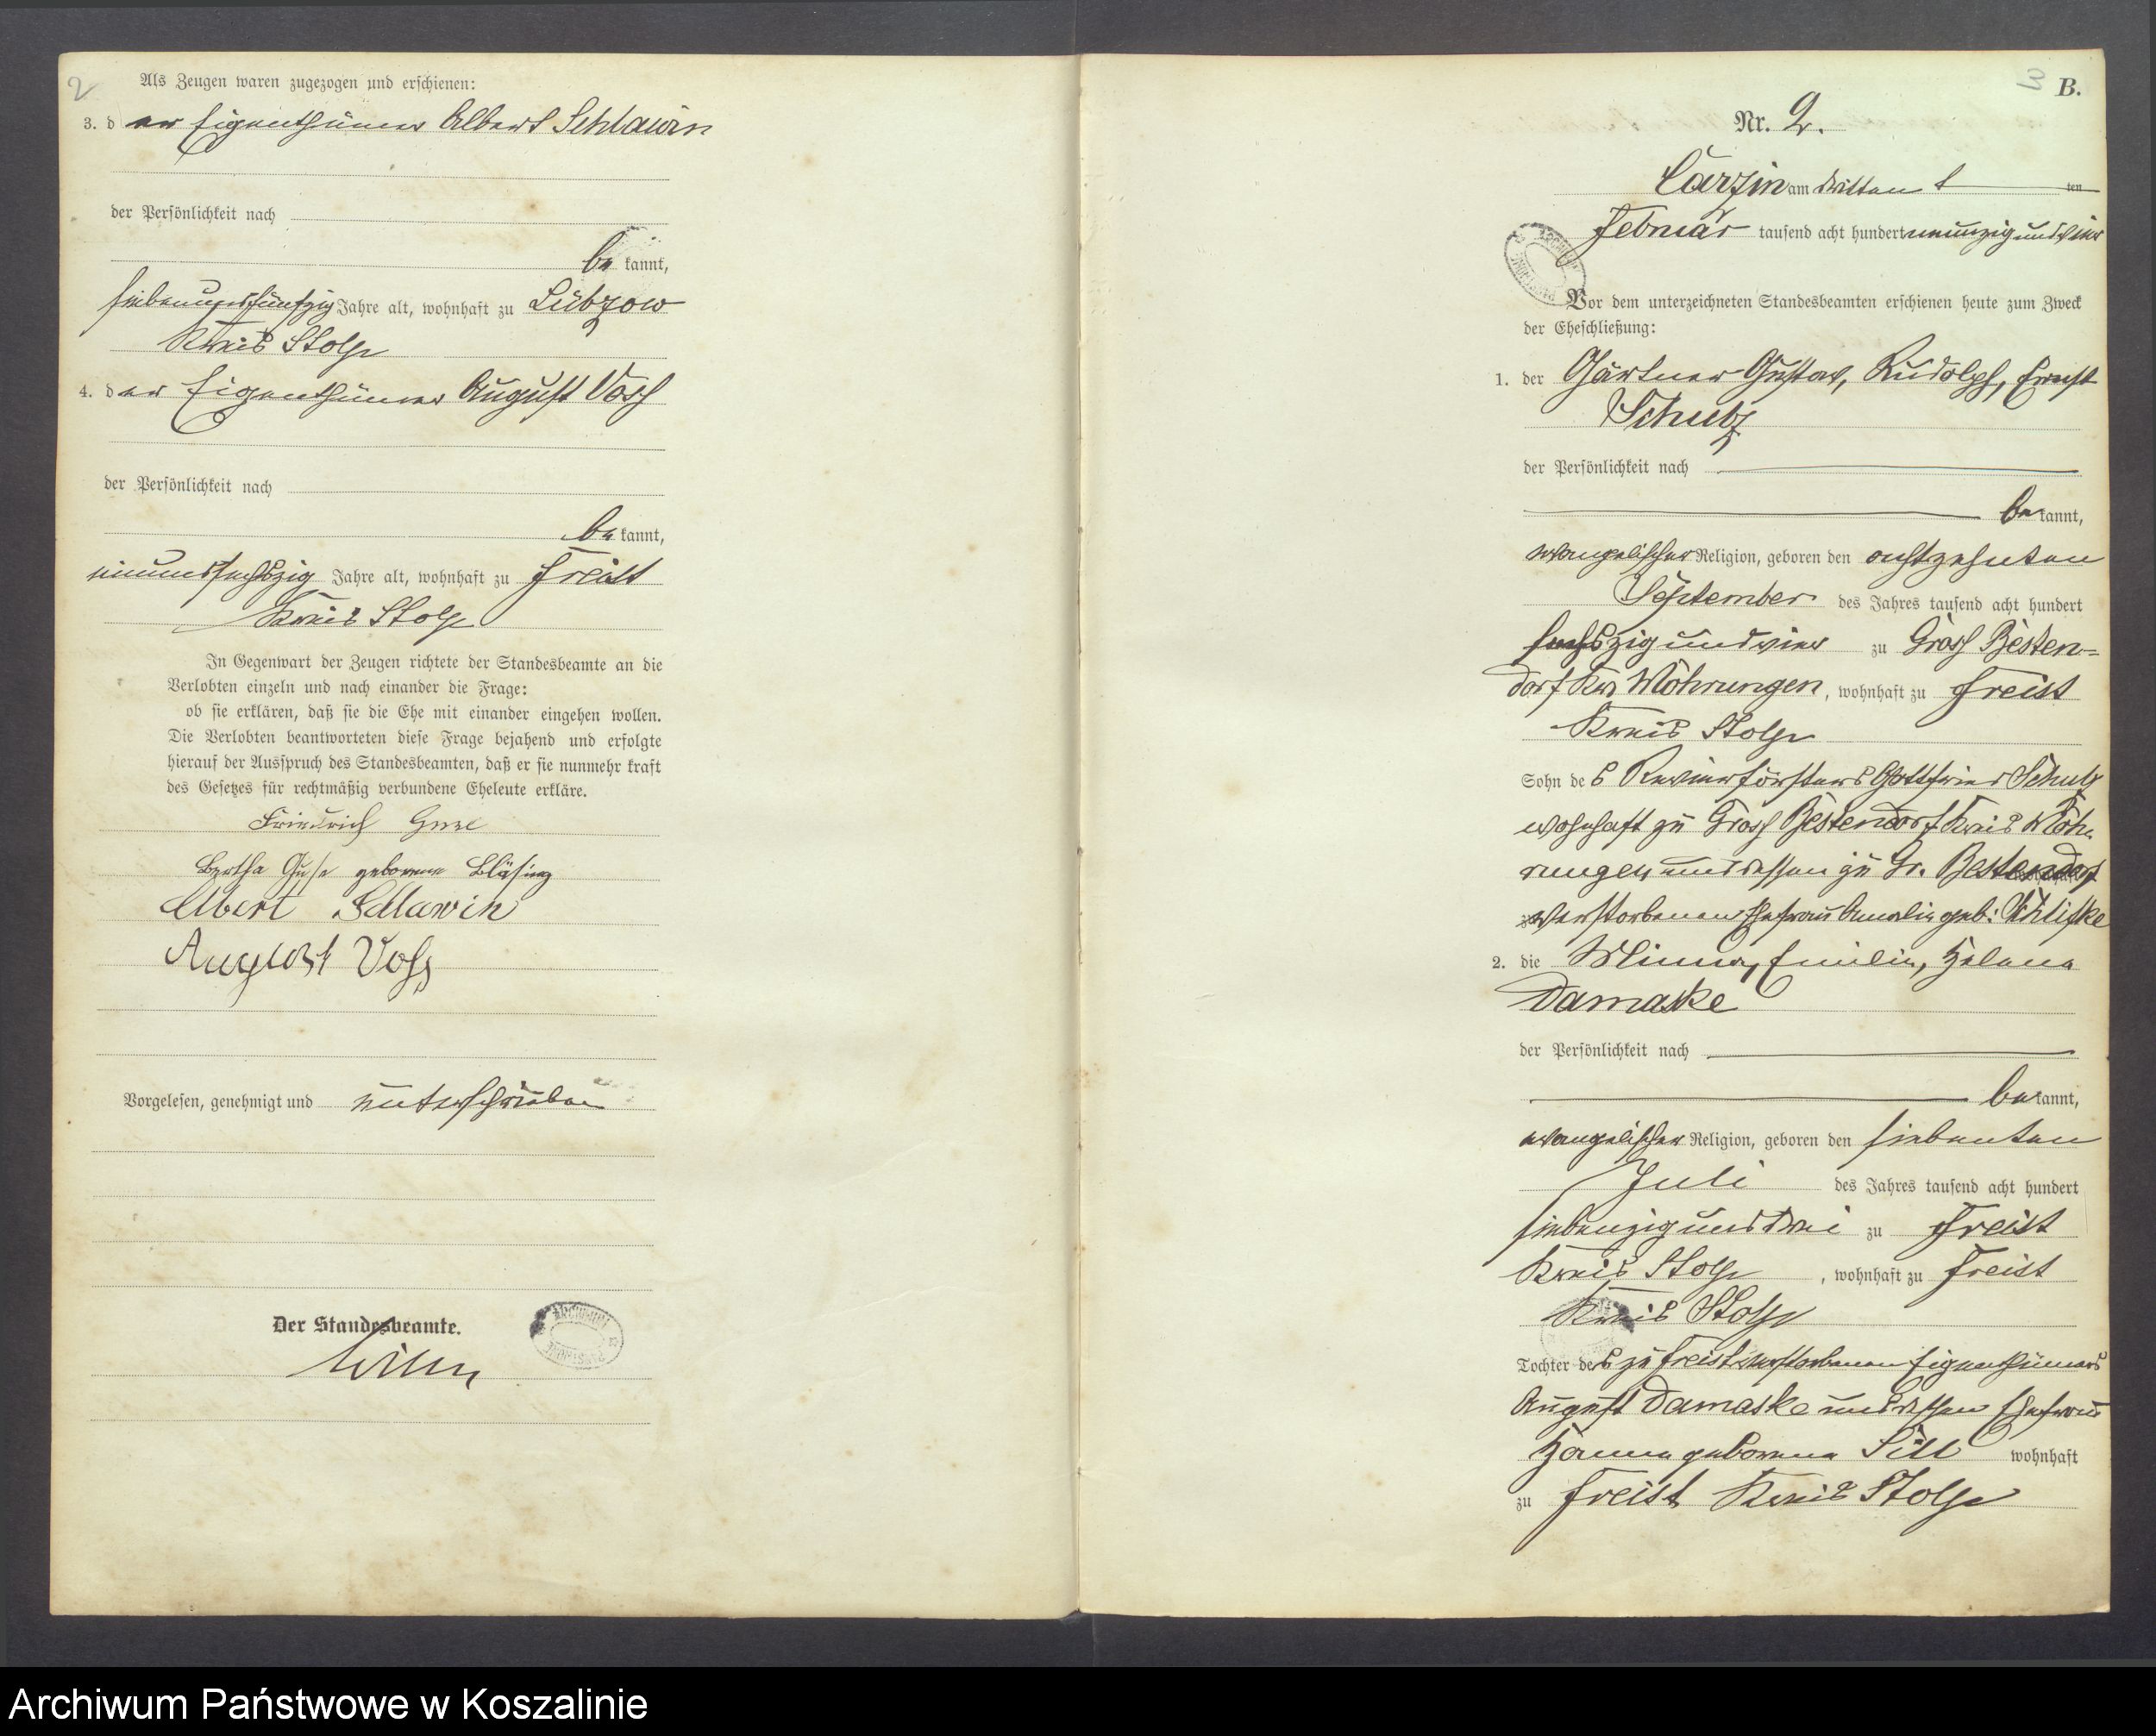 2
Als Zeugen waren zugezogen und erschienen:
3. der Eigenthümer Albert Schlawin
der Persönlichkeit nach
bekannt,
siebenundfünfzig Jahre alt, wohnhaft zu Lübzow
Kreis Stolp
4. der Eigenthümer August Voss
der Persönlichkeit nach
bekannt,
einundsechszig Jahre alt, wohnhaft zu Freist
Kreis Stolp
In Gegenwart der Zeugen richtete der Standesbeamte an die
Verlobten einzeln und nach einander die Frage:
ob sie erklären, daß sie die Ehe mit einander eingehen wollen.
Die Verlobten beantworteten diese Frage bejahend und erfolgte
hierauf der Ausspruch des Standesbeamten, daß er sie nunmehr kraft
des Gesetzes für rechtmäßig verbundene Eheleute erkläre.
Friedrich Guse
Bertha Guse geborene Bläsing
Albert Schlawin
August Voß
Vorgelesen, genehmigt und unterschrieben
Der Standesbeamte.
3
B.
Nr. 2.
Carzin am dritten ten
Februar tausend acht hundert neunzig und vier
Vor dem unterzeichneten Standesbeamten erschienen heute zum Zweck
der Eheschließung:
1. der Gärtner Gustav, Rudolph, Ernst
Schulz
der Persönlichkeit nach
bekannt,
evangelischer Religion, geboren den achtzehnten
September des Jahres tausend acht hundert
sechszig und vier zu Gross Besten=
dorf Krs Mohrungen, wohnhaft zu Freist
Kreis Stolp
Sohn des Revierförsters Gottfried Schulz
wohnhaft zu Gross Bestendorf Kreis Moh-
rungen und dessen zu Gr. Bestendorf
verstorbenen Ehefrau Amalie geb:
2. die Minna, Emilie, Helene
Damaske
der Persönlichkeit nach
bekannt,
evangelischer Religion, geboren den siebenten
Juli des Jahres tausend acht hundert
siebenzig und drei zu Freist
Kreis Stolp, wohnhaft zu Freist
Kreis Stolp
Tochter des zu Freist verstorbenen Eigenthümers
August Damaske und dessen Ehefrau
Hanna geborene Sill wohnhaft
zu Freist Kreis Stolp
Archiwum Państwowe w Koszalinie